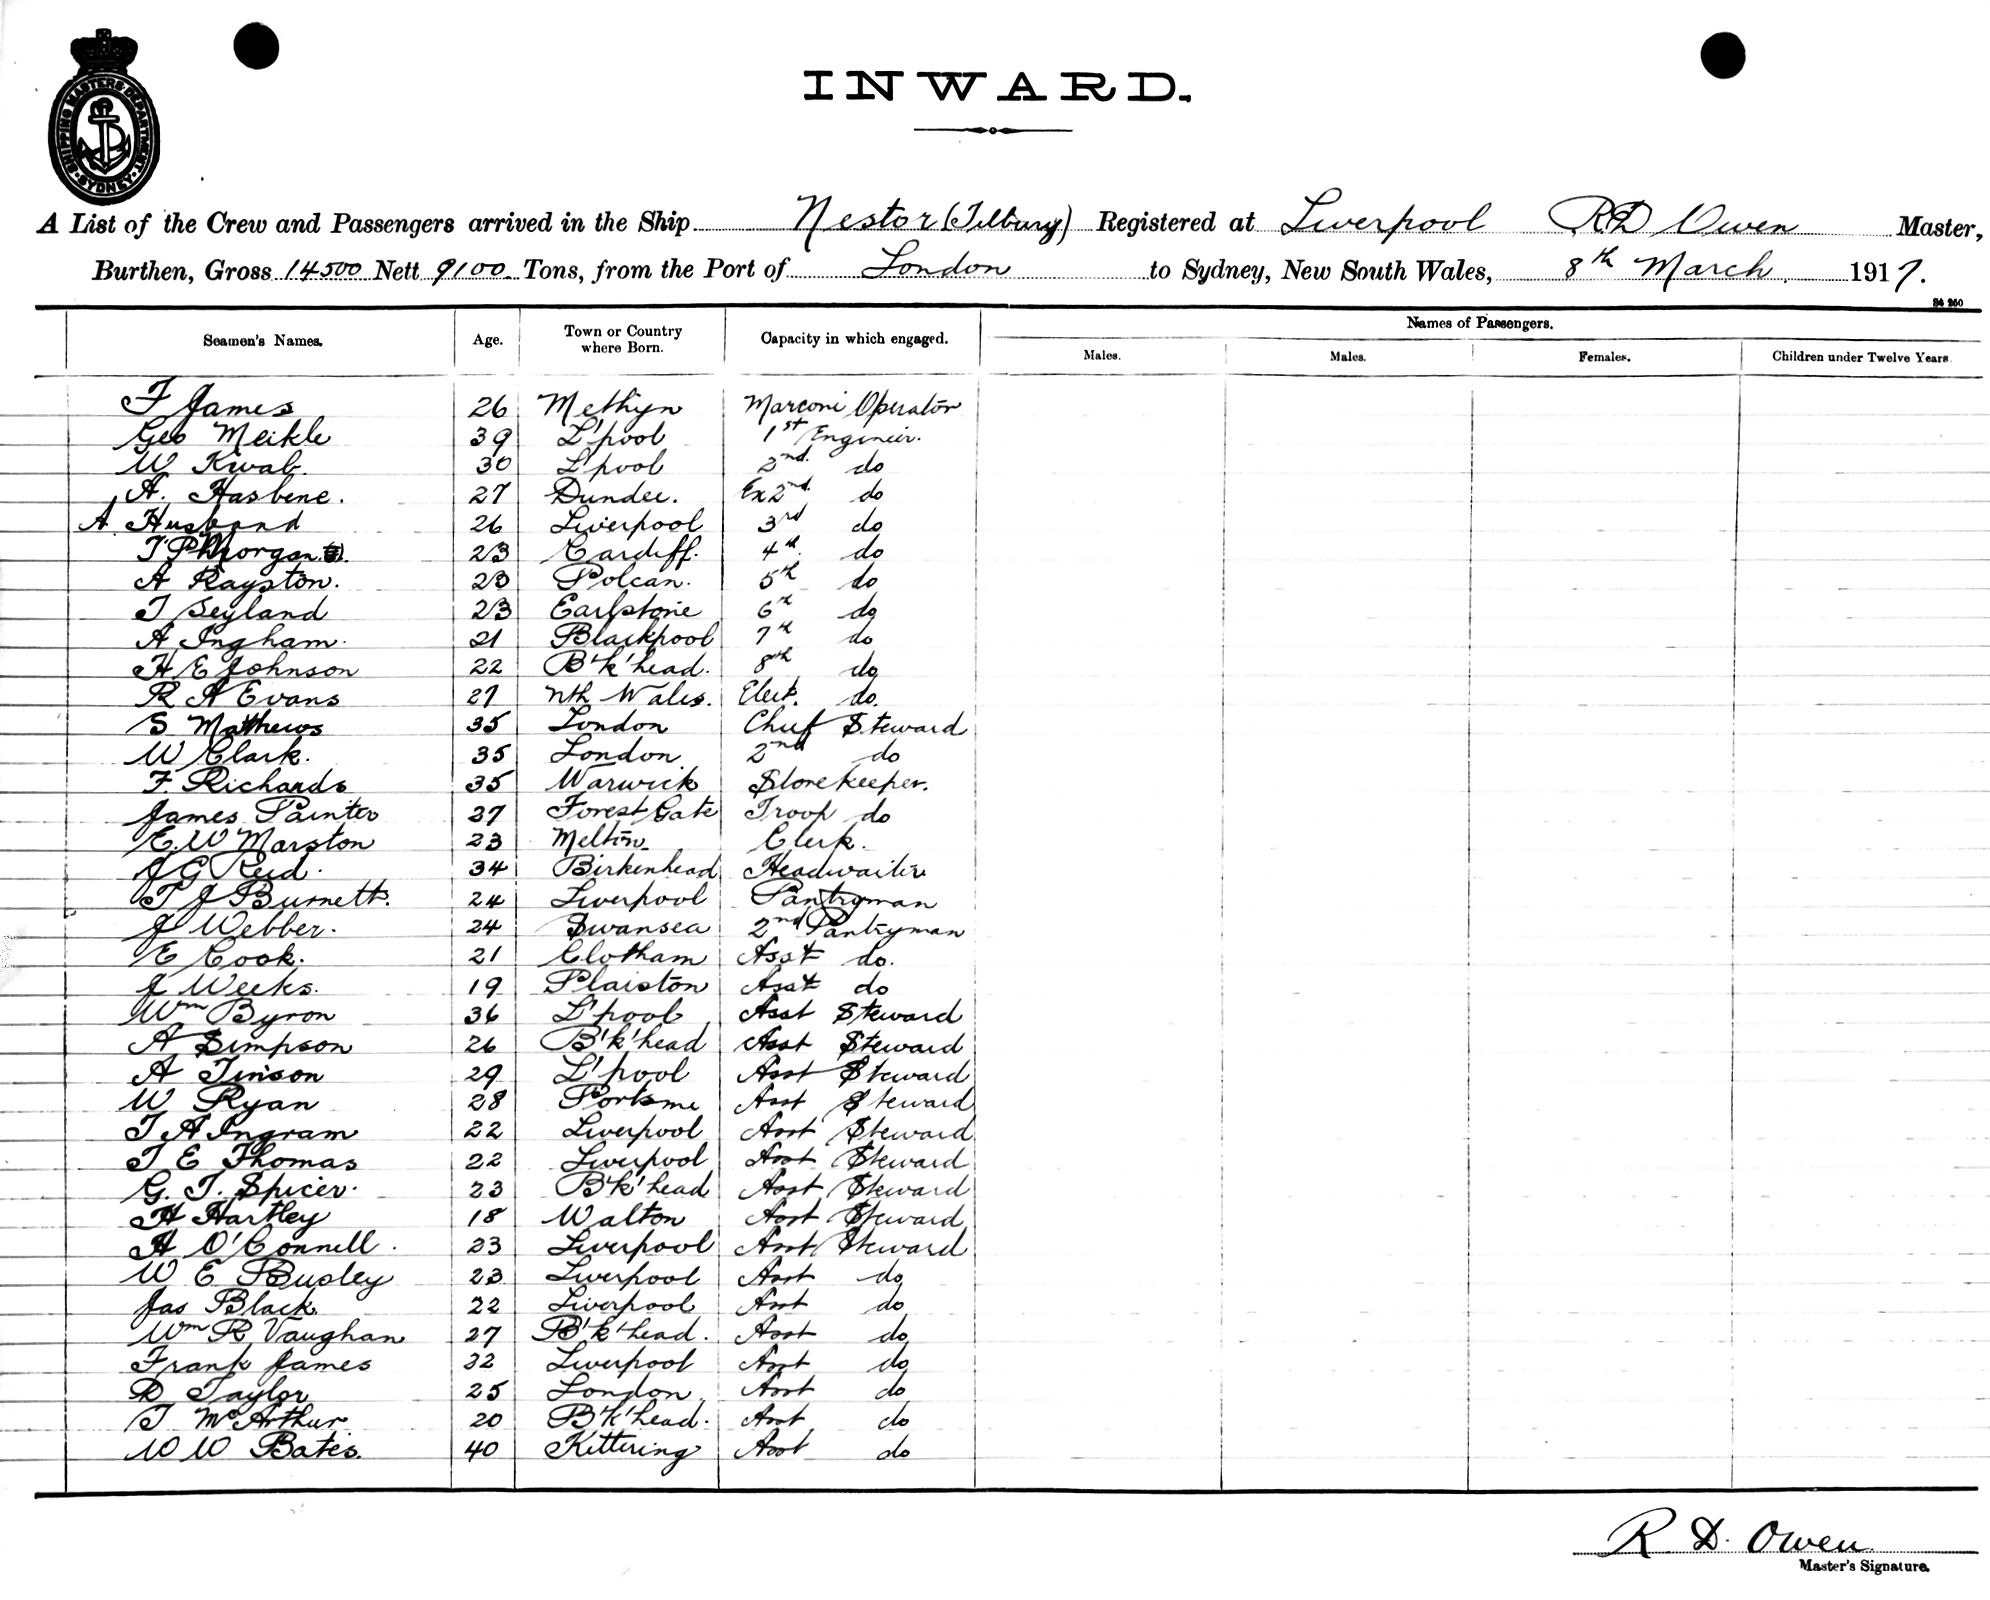 SHIPPING MASTERS DEPARTMENT. SYDNEY.
INWARD.
A List of the Crew and Passengers arrived in the Ship Nestor (Tilbury) Registered at Liverpool RD Owen Master,
Burthen, Gross 14500 Nett 9100 Tons, from the Port of London to Sydney, New South Wales, 8th March 1917.
Seamen's Names. Age. Town or Country where Born. Capacity in which engaged. Names of Passengers.
Males. Males. Females. Children under Twelve Years
F James 26 Methyn Marconi Operator
Geo Meikle 39 L'pool 1st Engineer.
W Kwab. 30 L'pool 2nd. do
A. Hasbene. 27 Dundee. Ex 2nd. do
A Husband 26 Liverpool 3rd do
T P Morgan 23 Cardiff. 4th. do
A Rayston. 23 Polcan. 5th do
T Seyland 23 Earlstone 6th do
A Ingham. 21 Blackpool 7th do
H E Johnson 22 B'k'head. 8th do
R A Evans 27 Nth Wales. Elect. do.
S Matthews 35 London Chief Steward
W Clark. 35 London 2nd do
F. Richards 35 Warwick Storekeeper.
James Painter 27 Forest Gate Troop do
E. W Marston 23 Melton Clerk.
J G Reid. 34 Birkenhead Headwaiter
T J Burnett. 24 Liverpool Pantryman
J Webber. 24 Swansea 2nd Pantryman
E Cook. 21 Clotham Asst do.
J Weeks. 19 Plaiston Asst do
Wm Byron 36 L'pool Asst Steward
A Simpson 26 B'k'head Asst Steward
A Tinson 29 L'pool Asst Steward
W Ryan 28 Portsme Asst Steward
T A Ingram 22 Liverpool Asst Steward
T E Thomas 22 Liverpool Asst Steward
G. T. Spicer. 23 B'k'head Asst Steward
H Hartley 18 Walton Asst Steward
H O'Connell. 23 Liverpool Asst Steward
W E Busley 23 Liverpool Asst do
Jas Black 22 Liverpool Asst do
Wm R Vaughan 27 B'k'head. Asst do
Frank James 32 Liverpool Asst do
D Taylor 25 London Asst do
T McArthur 20 B'k'head. Asst do
W W Bates. 40 Kittering Asst do
R D. Owen
Master's Signature.